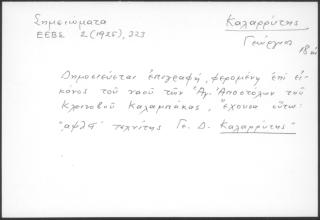 Σημειώματα
ΕΕΒΣ 2 (1925), 323
Καλαρρύτης
Γεώργιος
18 αἰ
Δημοσιεύεται ἐπιγραφή, φερομένη ἐπί εἰ-
κόνος τοῦ ναοῦ τῶν Ἁγ. Ἀποστόλων τοῦ
Κλεινοβοῦ Καλαμπάκας, ἔχουσα οὕτω:
"αψλδ' τεχνίτης Γε. Δ. Καλαρρύτης"